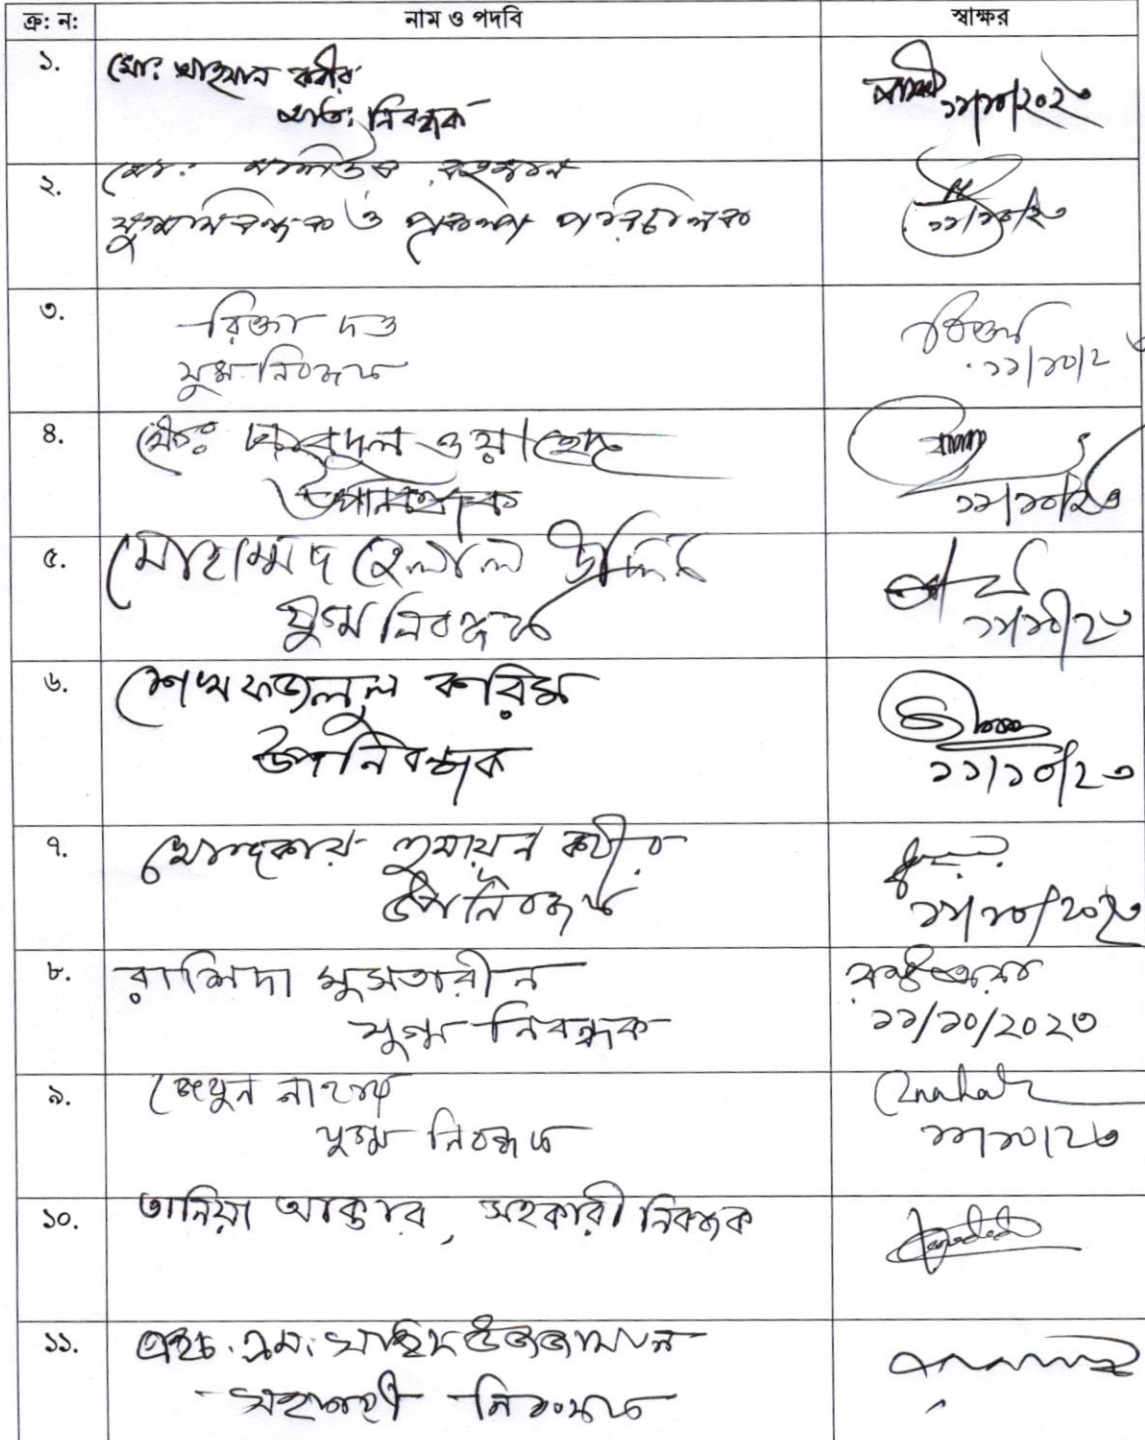 ক্র: ন: নাম ও পদবি স্বাক্ষর
১. মো: আহসান কবীর
অতি: নিবন্ধক ১১/১০/২০২৩
২. মো: রহমান
যুগ্মনিবন্ধক ও প্রকল্প পরিচালক ১১/১০/২৩
৩. রিক্তা দত্ত রিক্তা
যুগ্ম নিবন্ধক ১১/১০/২৩
৪. মোঃ আবদুল ওয়াহেদ
উপনিবন্ধক ১১/১০/২৩
৫. মোহাম্মদ হেলাল উদ্দিন
যুগ্ম নিবন্ধক ১১/১০/২৩
৬. শেখ ফজলুল করিম
উপনিবন্ধক ১১/১০/২৩
৭. খোন্দকার হুমায়ুন কবীর
উপনিবন্ধক ১১/১০/২০২৩
৮. রাশিদা মুসতারীন
যুগ্ম নিবন্ধক ১১/১০/২০২৩
৯. জেবুন নাহার Znahar
যুগ্ম নিবন্ধক ১১/১০/২৩
১০. তানিয়া আক্তার, সহকারী নিবন্ধক
১১. এইচ. এম. সহিদ উজ্জামান
সহকারী নিবন্ধক